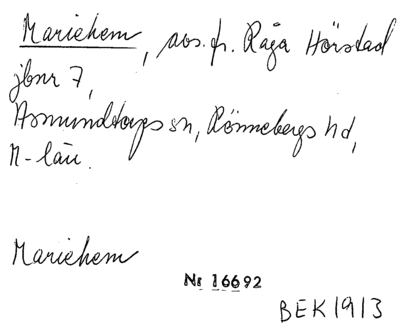 Mariehem, avs. fr. Råga Hörstad
jbnr 7,
Asmundtorps sn, Rönnebergs hd,
M-län.
Mariehem
Nr 16692
BEK 1913